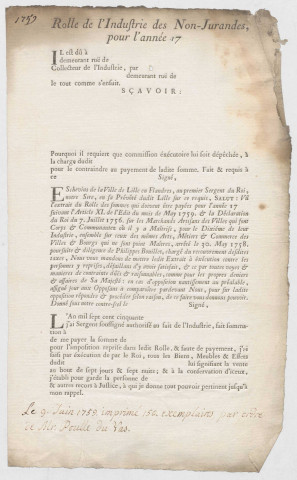 1759
Rolle de l'Industrie des Non-Jurandes,
pour l'année 17
IL est dû à
demeurant ruë de
Collecteur de l'Industrie, par
demeurant ruë de
le tout comme s'ensuit.
SÇAVOIR:
Pourquoi il requiert que commission exécutoire lui soit dépêchée, à
la charge dudit
pour le contraindre au payement de ladite somme. Fait & requis à
ce Signé,
Eschevins de la Ville de Lille en Flandres, au premier Sergent du Roi,
notre Sire, ou sa Prévôté dudit Lille sur ce requis, SALUT: Vû
l'extrait du Rolle des sommes qui doivent être payées pour l'année 17
suivant l'Article XI. de l'Edit du mois de May 1759. & la Déclaration
du Roi du 7. Juillet 1756. sur les Marchands Artisans des Villes qui sont
Corps & Communautez où il y a Maîtrise, pour le Dixième de leur
Industrie, ensemble sur ceux des mêmes Arts, Métiers & Commerce des
Villes & Bourgs qui ne sont pour Maîtres, arrêté le 30. May 1758.
poursuite & diligence de Philippes Bouillet, chargé du recouvrement desdites
taxes, Nous vous mandons de mettre ledit Extrait à exécution contre les
personnes y reprises, défaillans d'y avoir satisfait, & ce par toutes voyes &
manieres de contrainte dûës & raisonnables, comme pour les propres deniers
& affaires de Sa Majesté: en cas d'opposition nantissement au préalable,
assigné jour aux Opposans à comparoître pardevant Nous, pour sur ladite
opposition répondre & procéder selon raison, de ce faire vous donnons pouvoir.
Donné sous notre contre-scel le Signé,
L'An mil sept cent cinquante
j'ai Sergent soussigné authorisé au fait de l'Industrie, fait somma-
tion à
de me payer la somme de
pour l'imposition reprise dans ledit Rolle, & faute de payement, j'ai
saisi par exécution de par le Roi, tous les Biens, Meubles & Effets
dudit lui signifiant la vente
au bout de sept jours & sept nuits; & à la conservation d'iceux,
j'établi pour garde la personne de
& autres records à Justice, à qui je donne tout pouvoir pertinent jusqu'à
mon rappel.
Le 9 Juin 1759 imprimé 150 exemplaires par ordre
de Mr. Potelle du Vas.